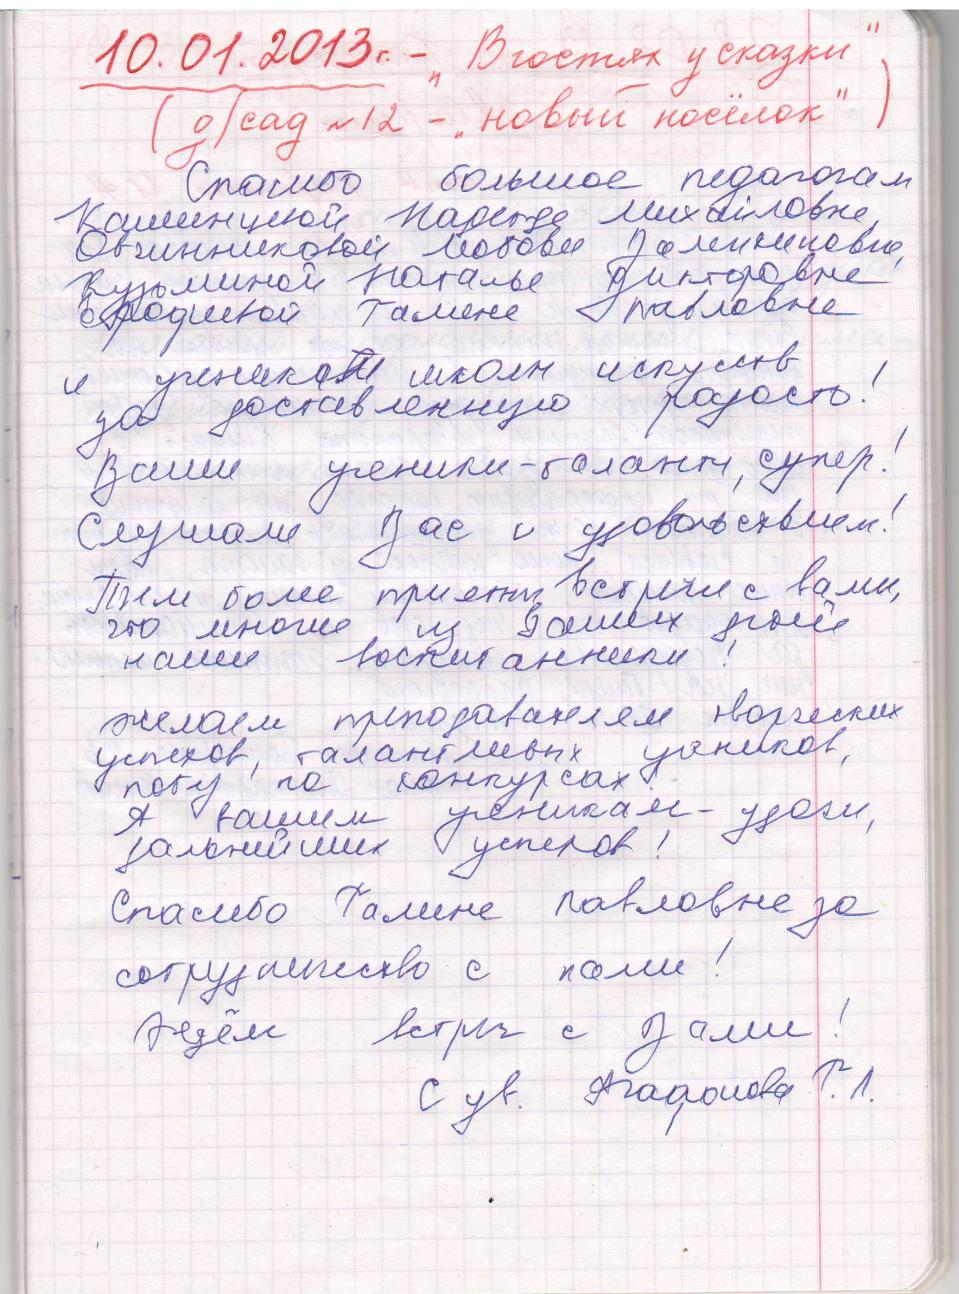 10.01.2013г. - „В гостях у сказки"
(д/сад №12 - „новый посёлок")
Спасибо большое педагогам
Надежде Михайловне,
Овчинниковой Любови Валентиновне,
Кузьминой Наталье Викторовне
Галине Павловне
и ученикам школы искуств
за доставленную радость!
Ваши ученики-таланты, супер!
Слушали Вас с удовольствием!
Тем более приятны встречи с вами,
что многие из Ваших детей
наши воспитанники!
Желаем преподавателям творческих
успехов, талантливых учеников,
побед по конкурсах!
А вашим ученикам - удачи,
дальнейших успехов!
Спасибо Галине Павловне за
сотрудничество с нами!
Ждём встреч с Вами!
С ув. Агафонова Г.Л.